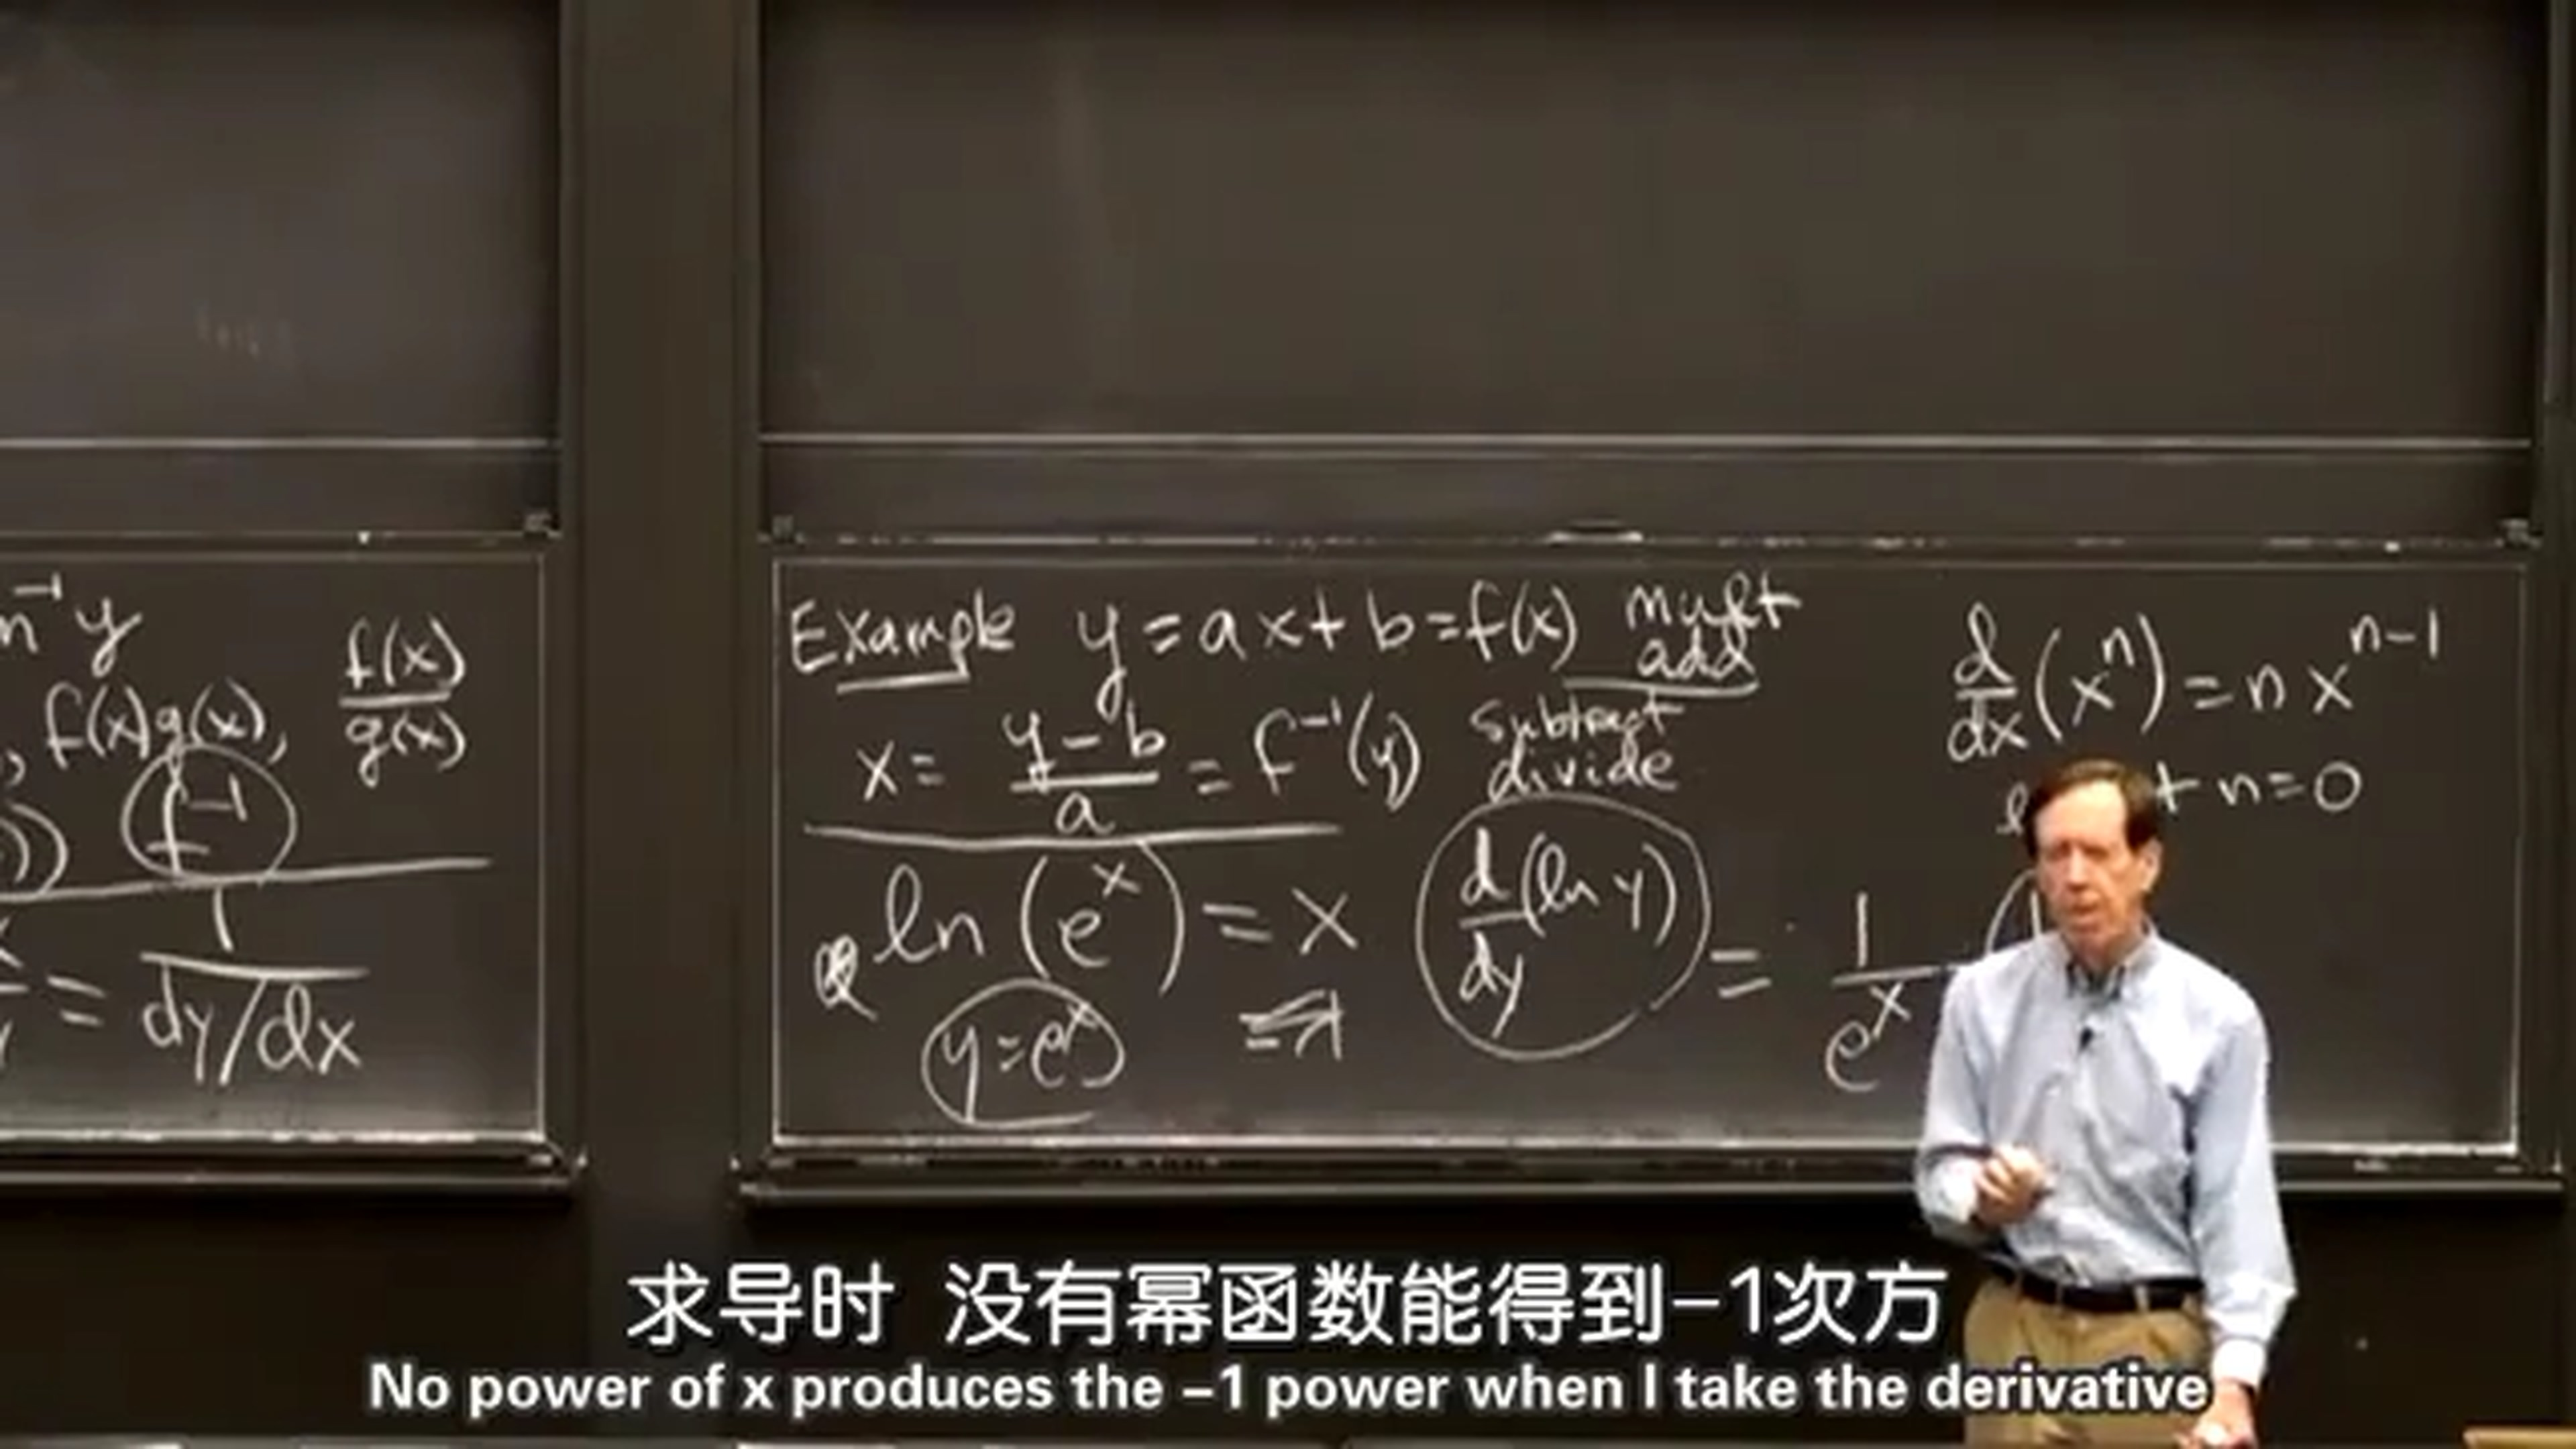 n⁻¹ y
, f(x)g(x), f(x)/g(x)
)) f⁻¹
= 1/(dy/dx)
Example y = ax + b = f(x) mult add
x = (y - b)/a = f⁻¹(y) subtract divide
ln(eˣ) = x d/dy (ln y) = 1/eˣ
y = eˣ
d/dx (xⁿ) = n xⁿ⁻¹
t n = 0
求导时 没有幂函数能得到-1次方
No power of x produces the -1 power when I take the derivative